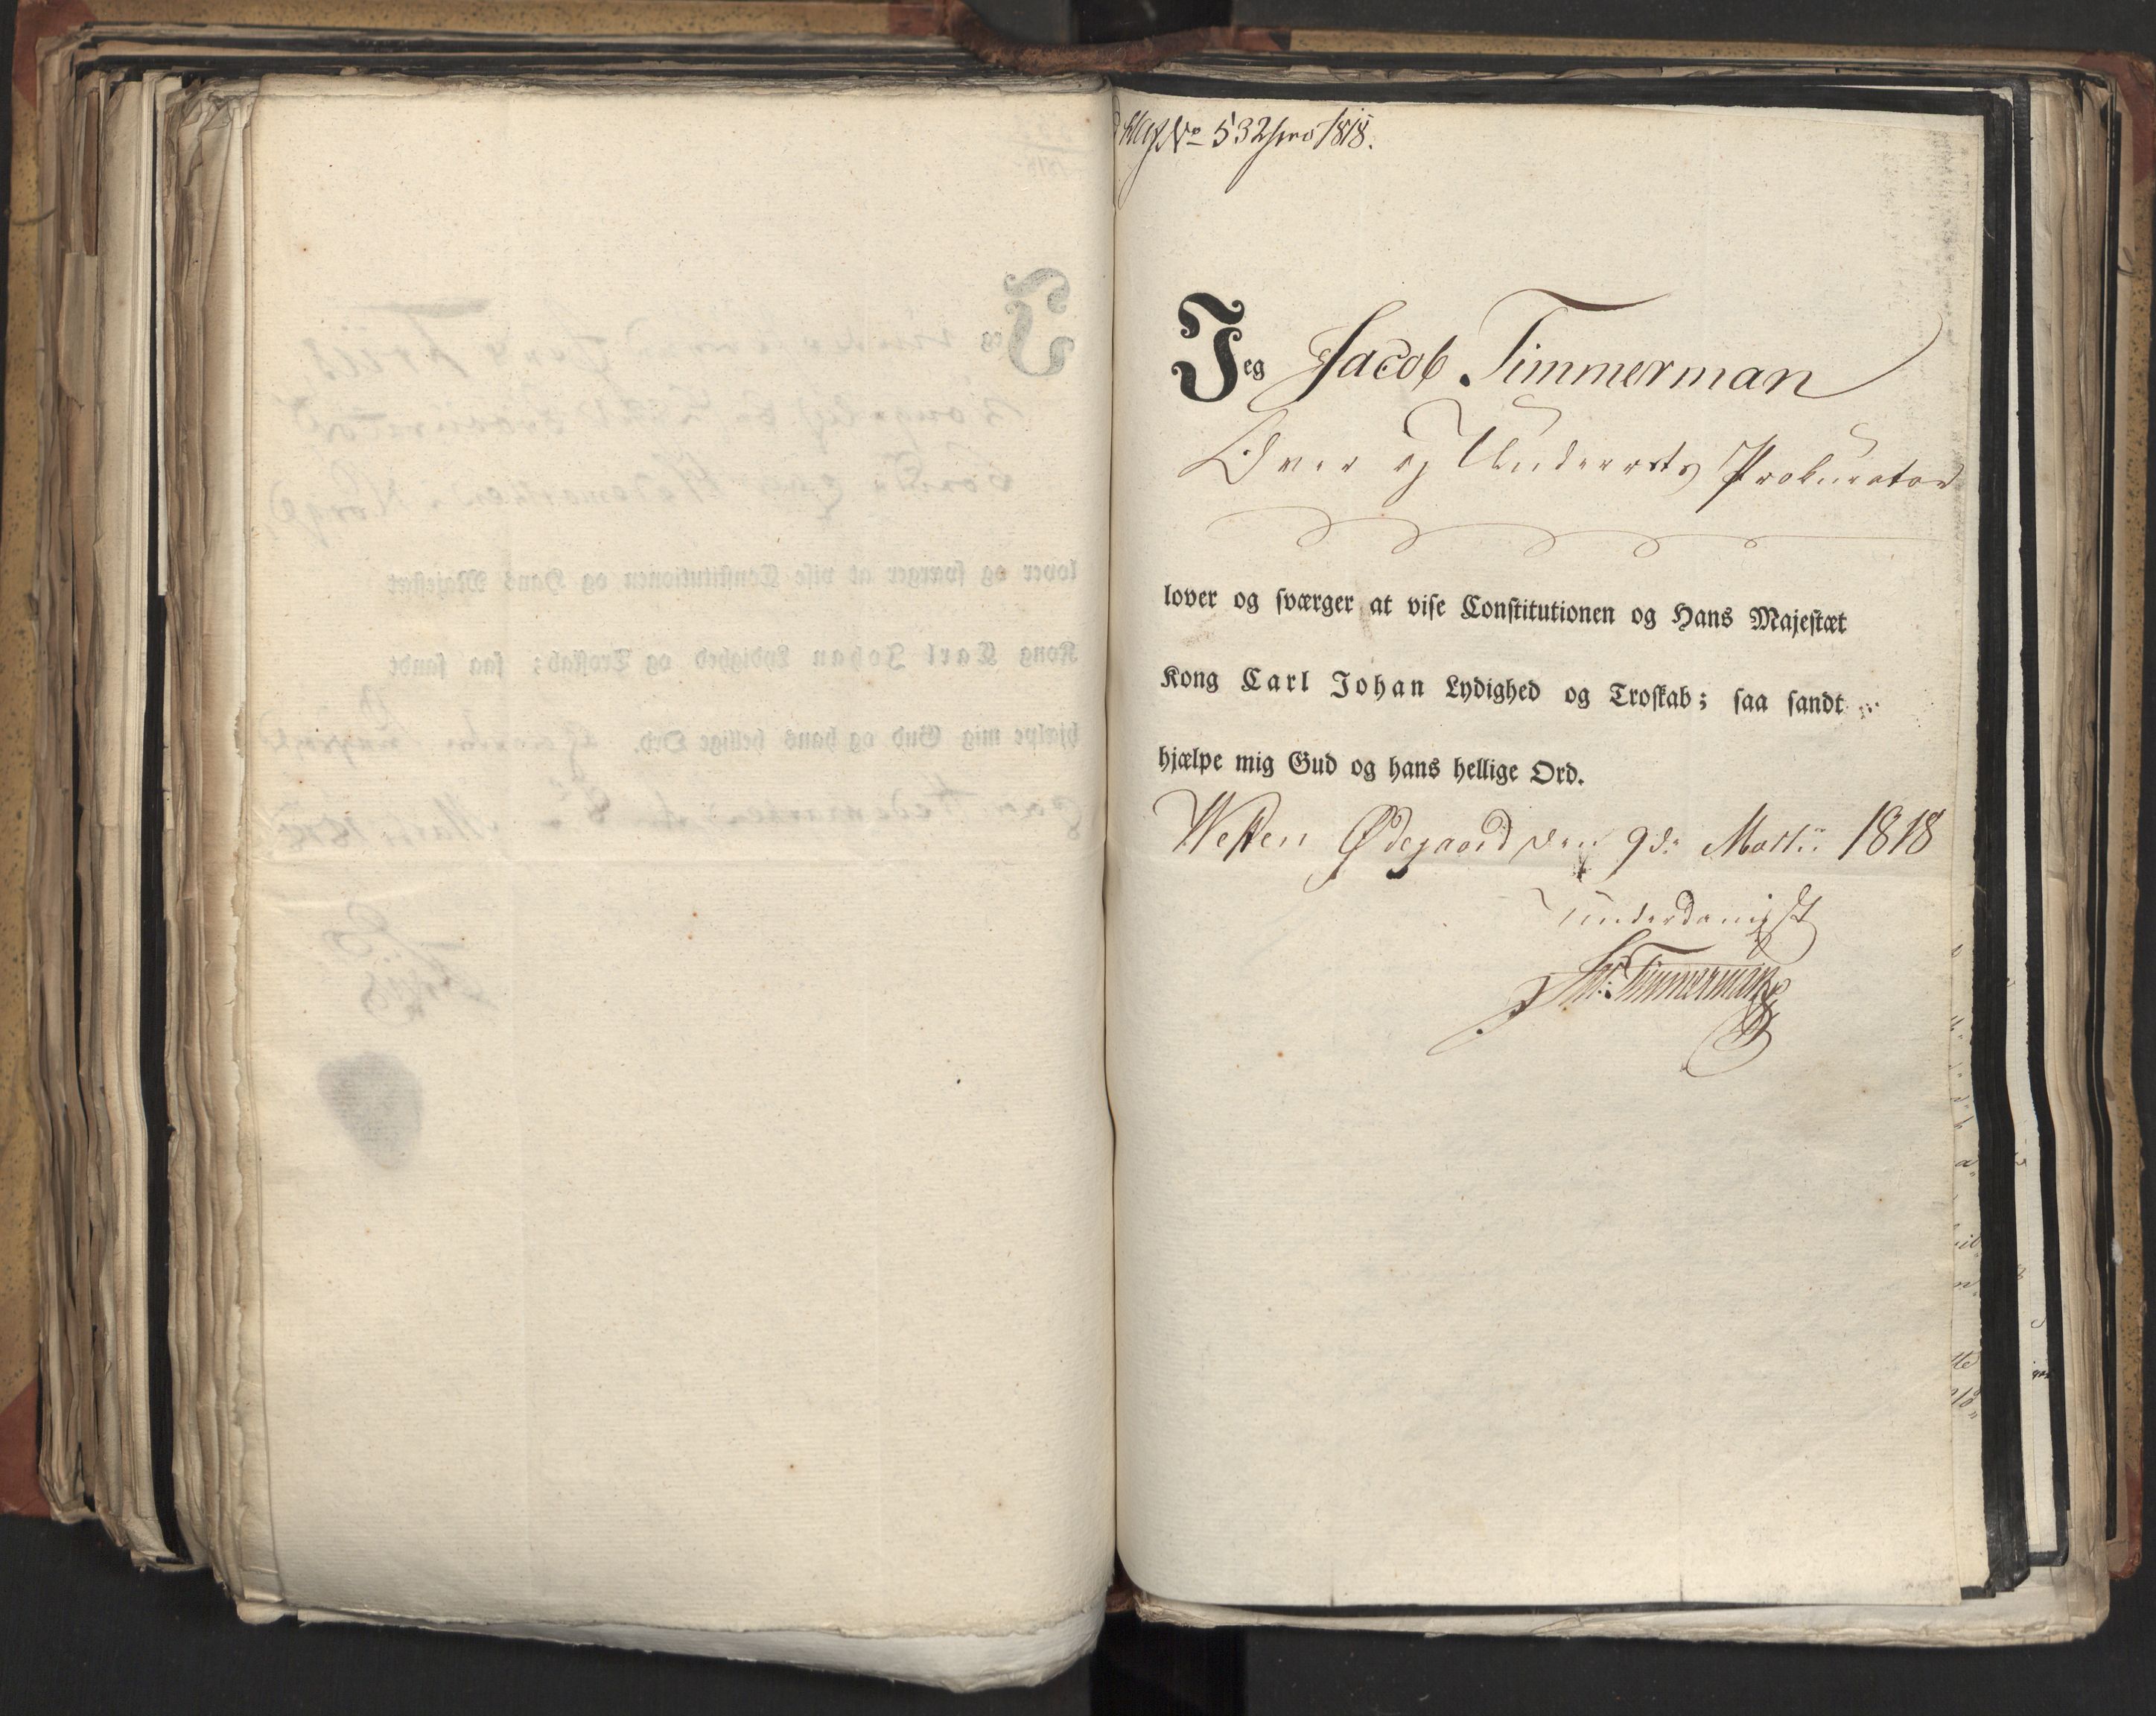 No 532 pro 1818.
Jeg Jacob Timmerman
Over og Underrets Prokurator
lover og sværger at vise Constitutionen og Hans Majestæt
Kong Carl Johan Lydighed og Troskab; saa sandt
hjælpe mig Gud og hans hellige Ord.
Westen Ødegaard den 9de Martii 1818
underdanigst
Timmerman